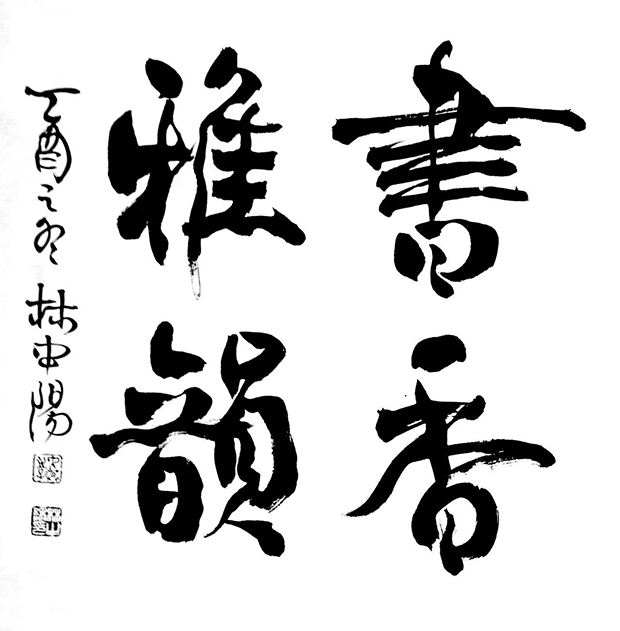 書香
雅韻
丁酉之冬 林中陽